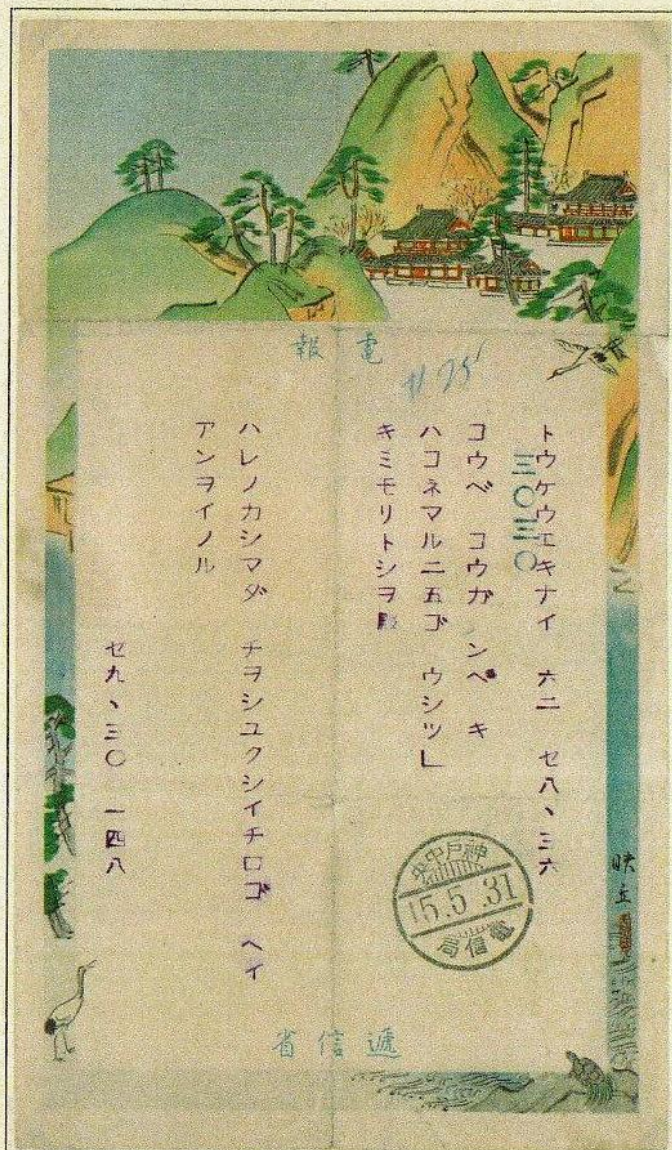 電報
#25
トウケウエキナイ 六二 セ八、三六
三〇三〇
コウベ コウガ ンペ キ
ハコネマル二五ゴ ウシツ」
キミモリトシヲ殿
ハレノカシマダ チヲシユクシイチロゴ ヘイ
アンヲイノル
セ九、三〇 一四八
神戸中央
15.5.31
電信局
映丘
逓信省